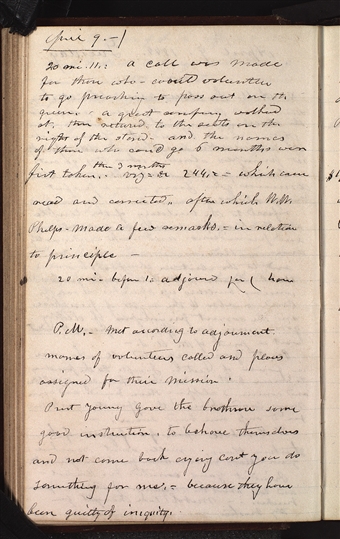 April 9. -
20 mi. 11.: a call was made
for those who - would volunteer
to go preaching to pass out on the
green. - a great company walked
out, then returned to the seats on the
right of the stand - and the names
of those who could go 6 months were
then 3 months
first taken. - viz 244,- = which came
read and corrected. after which W. W.
Phelps - made a few remarks. - in relation
to principle -
20 mi- before 1. adjourned for 1 hour
P. M. - Met according to adjournment
names of volunteers called and places
assigned for their mission.
Prest young gave the brethren some
good instruction. to behave themselves
and not come back crying cant you do
something for me. = because they have
been guilty of iniquity.